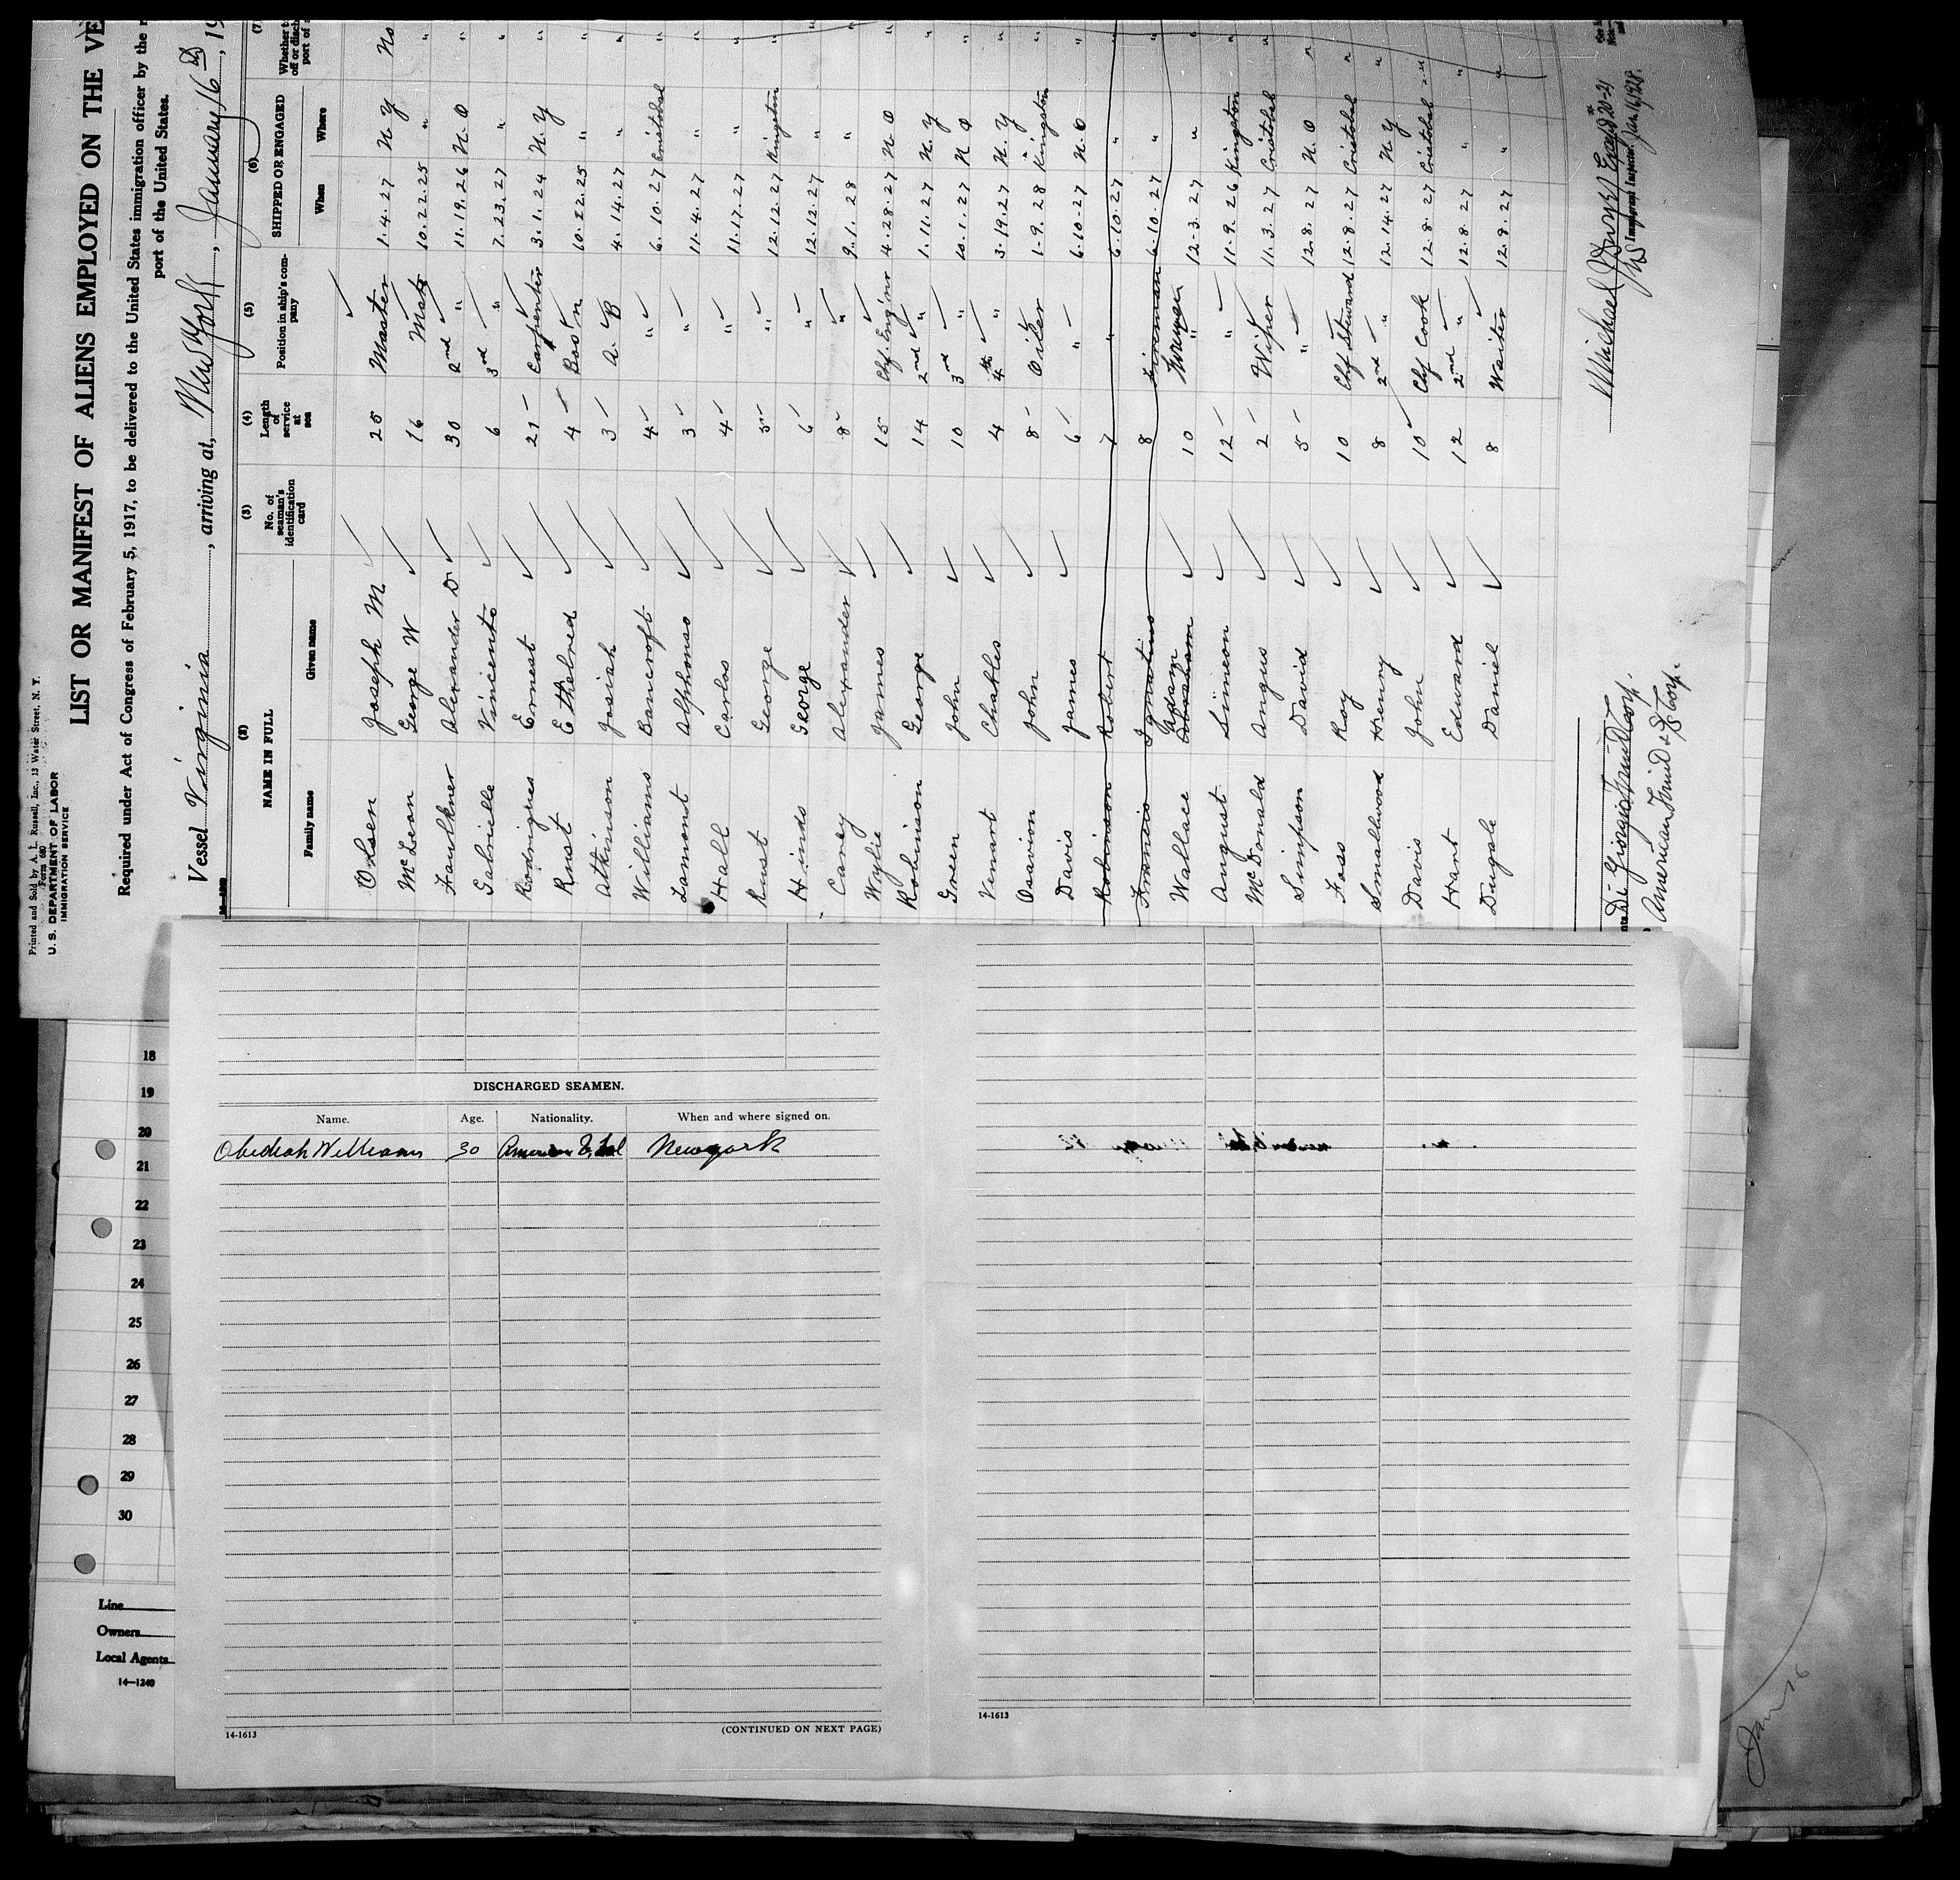 Printed and Sold by A. L. Russell, Inc., 13 Water Street, N. Y.
Form 680
U. S. DEPARTMENT OF LABOR
IMMIGRATION SERVICE
LIST OR MANIFEST OF ALIENS EMPLOYED ON THE VE
Required under Act of Congress of February 5, 1917, to be delivered to the United States immigration officer by the
port of the United States.
Vessel Virginia, arriving at, New York, January 16th, 19
(2) (3) (4) (5) (6) (7)
NAME IN FULL No. of seaman's identification card Length of service at sea Position in ship's company SHIPPED OR ENGAGED
Family name Given name When Where
Olsen Joseph M 25 Master 1.4.27 N Y No
McLean George W 16 Mate 10.22.25 " "
Faulkner Alexander D 30 2nd " 11.19.26 N. O "
Gabrielle Vincento 6 3rd " 7.23.27 " "
Rodriques Ernest 21 Carpenter 3.1.24 N. Y "
Rust Ethelred 4 Bos'n 10.22.25 " "
Atkinson Josiah 3 A. B 4.14.27 " "
Williams Bancroft 4 " 6.10.27 Cristobal "
Lamont Alphonso 3 " 11.4.27 " "
Hall Carlos 4 " 11.17.27 " "
Rust George 5 " 12.12.27 Kingston "
Hinds George 6 " 12.12.27 " "
Carey Alexander 8 " 9.1.28 " "
Wylie James 15 Chf. Eng'nr 4.28.27 N. O "
Robinson George 14 2nd " 1.11.27 N. Y "
Green John 10 3rd " 10.1.27 N O "
Venart Charles 4 4th " 3.19.27 N. Y "
Osavion John 8 Oiler 1-9.28 Kingston "
Davis James 6 " 6.10-27 N. O "
Robinson Robert 7 " 6.10.27 " "
Francis Ignatius 8 Fireman 6.10.27 " "
Wallace Adam Abraham 10 " 12-3.27 " "
August Simeon 12 " 11.9.26 Kingston "
McDonald Angus 2 Wiper 11.3.27 Cristobal "
Simpson David 5 " 12.8.27 N. O "
Foss Roy 10 Chf Steward 12.8.27 Cristobal "
Smallwood Henry 8 2nd " 12.14.27 N Y "
Davis John 10 Chf Cook 12.8.27 Cristobal "
Hart Edward 12 2nd " 12.8.27 " "
Dugale Daniel 8 Waiter 12.8.27 " "
Di Giorgio Fruit Corp.
American Fruit & S Corp.
Michael
Immigrant Inspector
Jan. 16, 1928.
18
19
20
21
22
23
24
25
26
27
28
29
30
Line
Owners
Local Agents
14—1240
DISCHARGED SEAMEN.
Name. Age. Nationality. When and where signed on.
Obediah Williams 30 American New york
14-1613 (CONTINUED ON NEXT PAGE)
14-1613
Jan 16